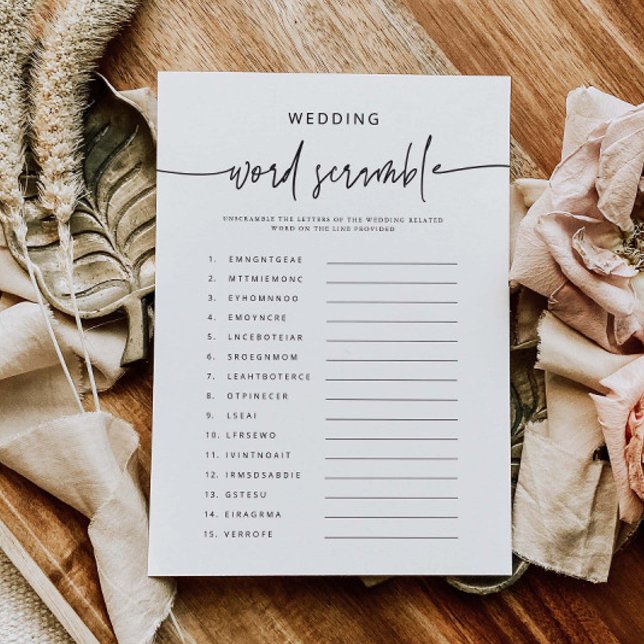 WEDDING
word scramble
UNSCRAMBLE THE LETTERS OF THE WEDDING RELATED
WORD ON THE LINE PROVIDED
1. EMNGNTGEAE
2. MTTMIEMONC
3. EYHOMNNOO
4. EMOYNCRE
5. LNCEBOTEIAR
6. SROEGNMOM
7. LEAHTBOTERCE
8. OTPINECER
9. LSEAI
10. LFRSEWO
11. IVINTNOAIT
12. IRMSDSABDIE
13. GSTESU
14. EIRAGRMA
15. VERROFE